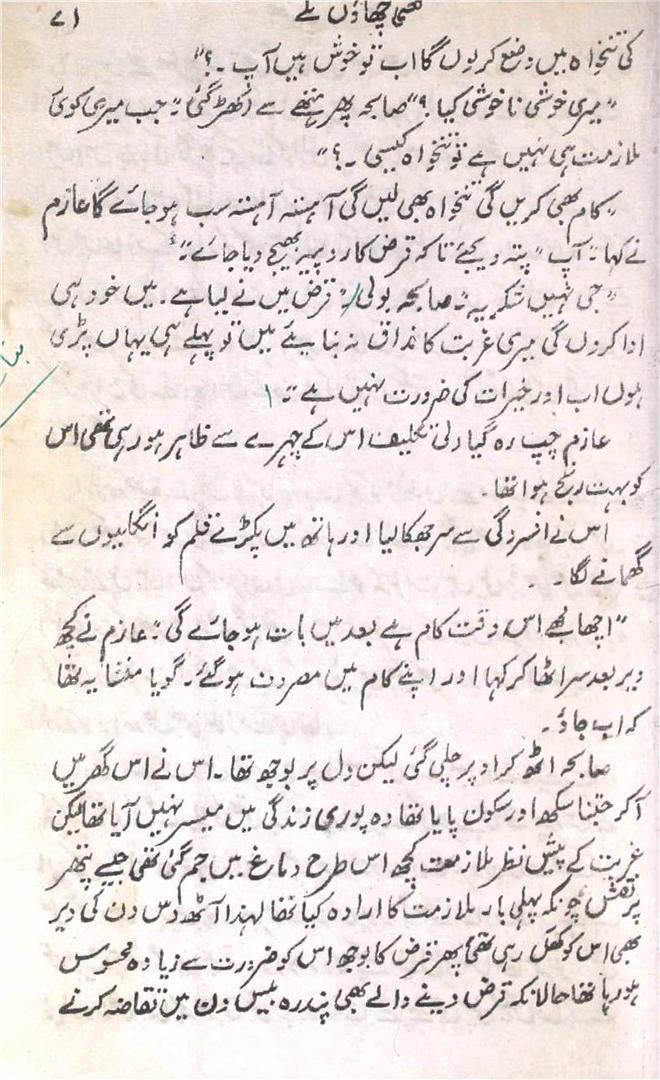 ۷۱ چھاؤں تلے
کی تنخواہ میں وضع کر لوں گا اب تو خوش ہیں آپ ۔ ؟"
"میری خوشی ناخوشی کیا ؟" صابحہ پھر ہتھے سے اُکھڑ گئی " جب میری کوئی
ملازمت ہی نہیں ہے تو تنخواہ کیسی ۔ ؟"
"کام بھی کریں گی تنخواہ بھی لیں گی آہستہ آہستہ سب ہو جائے گا عازم
نے کہا " آپ " پتہ دیجئے تاکہ قرض کا روپیہ بھیج دیا جائے ۔"
"جی نہیں شکریہ " صابحہ بولی " قرض میں نے لیا ہے ۔ میں خود ہی
ادا کر دوں گی میری غربت کا مذاق نہ بنایئے میں تو پہلے ہی یہاں پڑی
ہوں اب اور خیرات کی ضرورت نہیں ہے ۔"
عازم چپ رہ گیا دلی تکلیف اس کے چہرے سے ظاہر ہو رہی تھی اس
کو بہت رنج ہوا تھا ۔
اس نے افسردگی سے سر جھکا لیا اور ہاتھ میں پکڑے قلم کو انگلیوں سے
گھمانے لگا ۔
"اچھا مجھے اس وقت کام ہے بعد میں بات ہو جائے گی " عازم نے کچھ
دیر بعد سر اٹھا کر کہا اور اپنے کام میں مصروف ہو گئے ۔ گویا منشا یہ تھا
کہ اب جاؤ ۔
صابحہ اٹھ کر اوپر چلی گئی لیکن دل پر بوجھ تھا ۔ اس نے اس گھر میں
آ کر جتنا سکھ اور سکون پایا تھا وہ پوری زندگی میں میسر نہیں آیا تھا لیکن
غربت کے پیش نظر ملازمت کچھ اس طرح دماغ میں جم گئی تھی جیسے پتھر
پر نقش چونکہ پہلی بار ملازمت کا ارادہ کیا تھا لہذا آٹھ دس دن کی دیر
بھی اس کو کھل رہی تھی پھر قرض کا بوجھ اس کو ضرورت سے زیادہ محسوس
ہو رہا تھا حالانکہ قرض دینے والے بھی پندرہ بیس دن میں تقاضہ کرنے